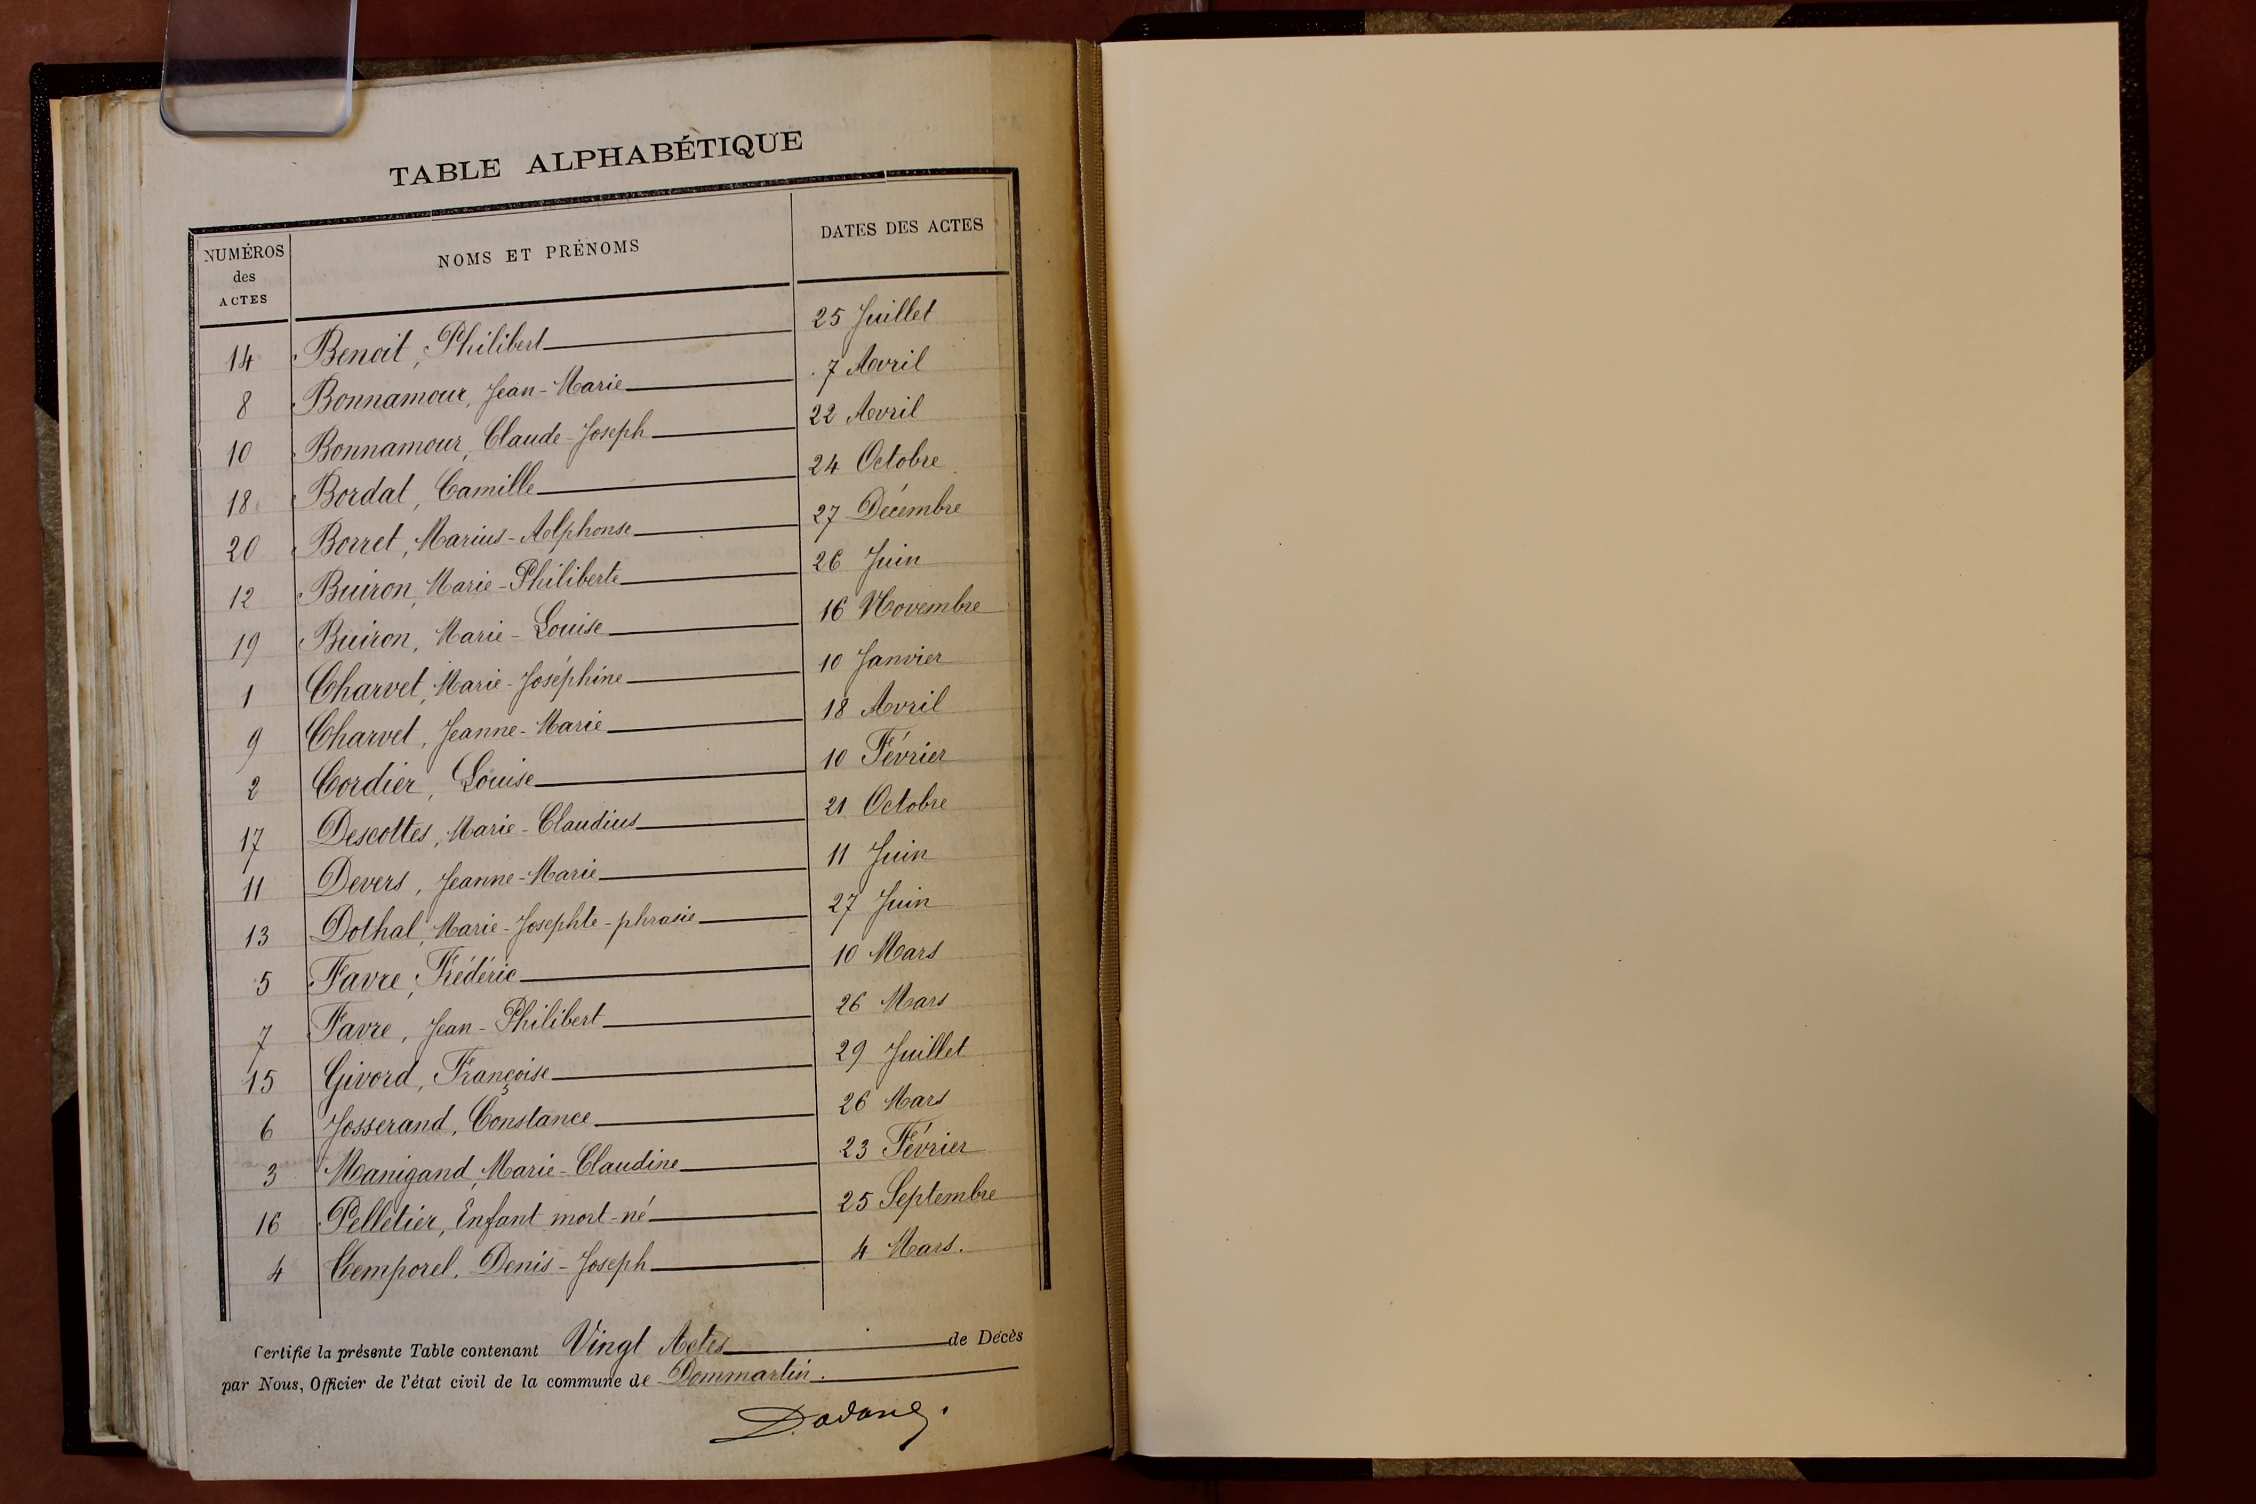 TABLE ALPHABÉTIQUE
NUMÉROS des ACTES NOMS ET PRÉNOMS DATES DES ACTES
14 Benoit, Philibert 25 Juillet
8 Bonnamour, Jean-Marie 7 Avril
10 Bonnamour, Claude-Joseph 22 Avril
18 Bordat, Camille 24 Octobre
20 Borret, Marius-Adolphonse 27 Décembre
12 Buiron, Marie-Philiberte 26 Juin
19 Buiron, Marie-Louise 16 Novembre
1 Charvet, Marie-Joséphine 10 Janvier
9 Charvet, Jeanne-Marie 18 Avril
2 Cordier, Louise 10 Février
17 Descottes, Marie-Claudius 21 Octobre
11 Devers, Jeanne-Marie 11 Juin
13 Dothal, Marie-Josephte-phrasie 27 Juin
5 Favre, Frédéric 10 Mars
7 Favre, Jean-Philibert 26 Mars
15 Givord, Françoise 29 Juillet
6 Josserand, Constance 26 Mars
3 Manigand, Marie-Claudine 23 Février
16 Pelletier, Enfant mort-né 25 Septembre
4 Temporel, Denis-Joseph 4 Mars.
Certifié la présente Table contenant Vingt Actes de Décès
par Nous, Officier de l'état civil de la commune de Dommartin.